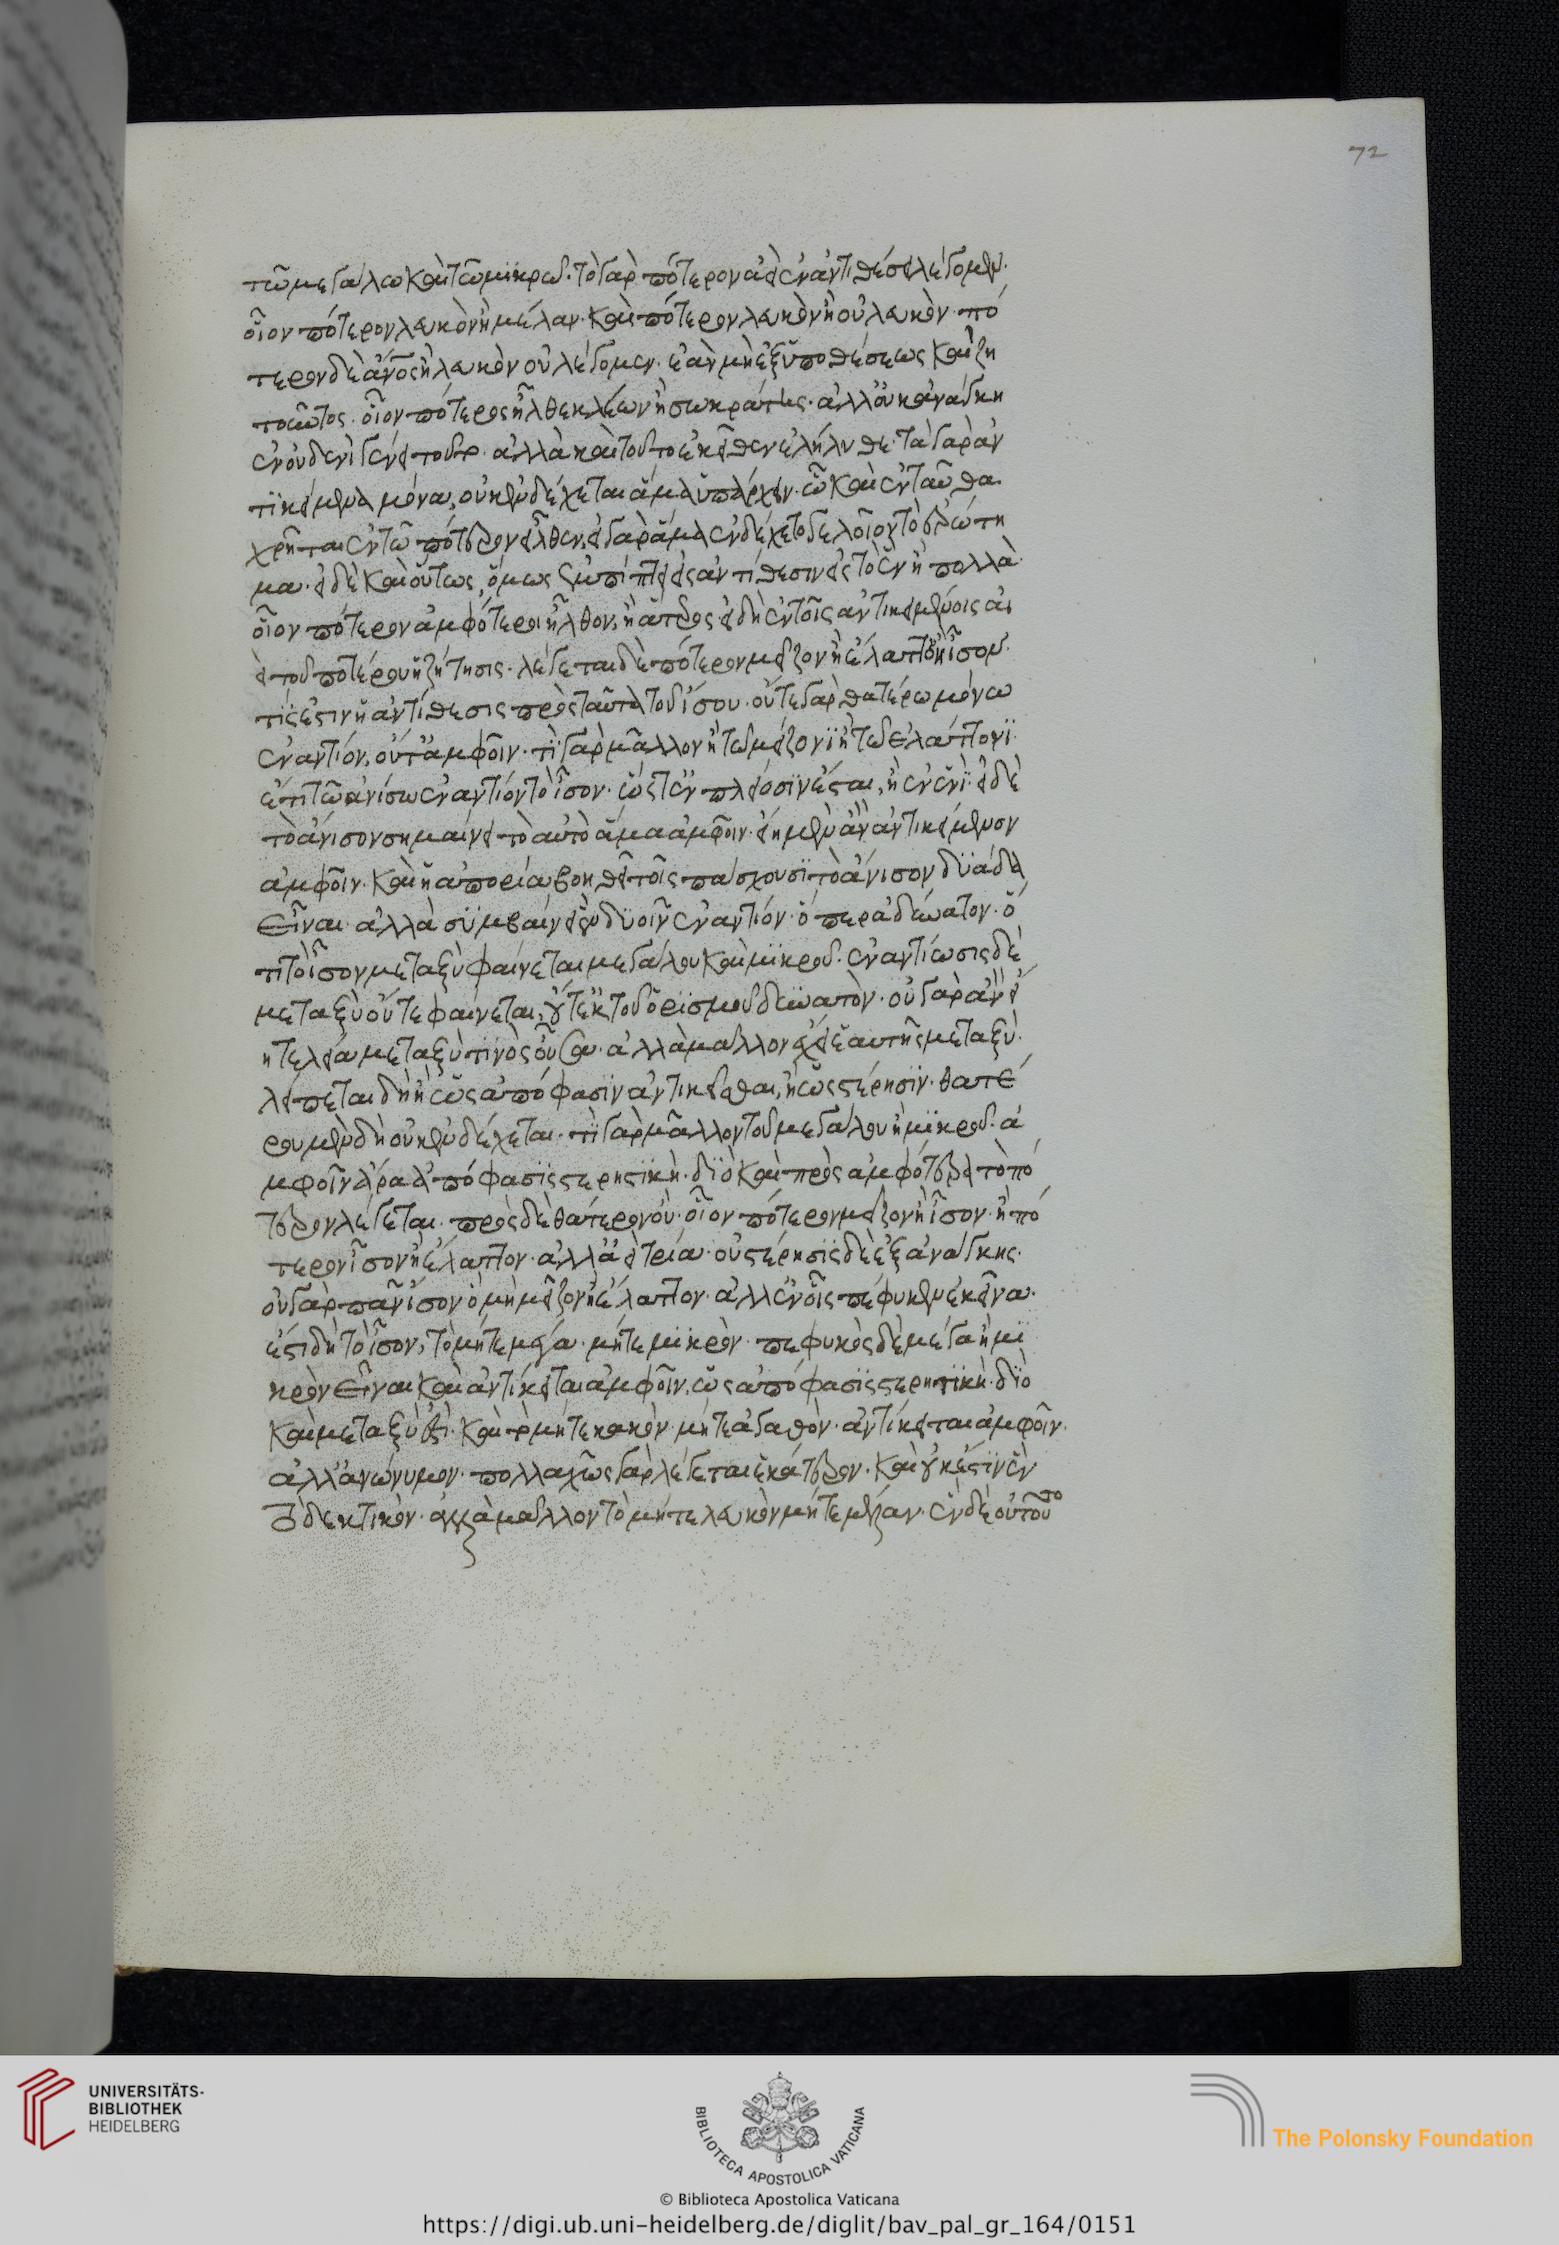 72
τῶ μεγάλω καὶ τῶ μϊκρῶ· τὸ γὰρ πότερον ἀεὶ ἐν ἀντιθέσει λέγομεν·
οἷον πότερον λευκὸν ἢ μέλαν· καὶ πότερον λευκὸν ἢ οὐ λευκόν· πό
τερον δὲ ἄνος ἢ λευκὸν οὐ λέγομεν· ἐὰν μὴ ἐξ ὑποθέσεως καὶ ζη
τοῦντος· οἷον πότερος ἦλθε κλέων ἢ σωκράτης· ἀλλ' οὐκ ἀνάγκη
ἐν οὐδενὶ γένει τοῦτο· ἀλλὰ καὶ τοῦτο ἐκεῖθεν ἐλήλυθε· τὰ γὰρ ἀν
τϊκείμενα μόνα, οὐκ ἐνδέχεται ἅμα ὑπάρχειν· ὧ καὶ ἐνταῦθα
χρῆται ἐν τῶ πότερον ἦλθεν, εἰ γὰρ ἅμα ἐνδέχετο γελοῖον τὸ ἐρώτη
μα· εἰ δὲ καὶ οὕτως, ὅμως ἐμπίπτει εἰς ἀντίθεσιν εἰς τὸ ἓν ἢ πολλὰ·
οἷον πότερον ἀμφότεροι ἦλθον, ἢ ἅτερος· εἰ δὴ ἐν τοῖς ἀντικειμένοις ἀ
εὶ τοῦ ποτέρου ἡ ζήτησις· λέγεται δὲ πότερον μεῖζον ἢ ἔλαττον ἢ ἴσον·
τίς ἐστιν ἡ ἀντίθεσις πρὸς ταῦτα τοῦ ἴσου· οὔτε γὰρ θατέρω μόνω
ἐναντίον, οὔτ' ἀμφοῖν· τί γὰρ μᾶλλον ἢ τῶ μείζονϊ ἢ τῶ ἐλάττονϊ·
ἔτι τῶ ἀνίσω ἐναντίον τὸ ἴσον· ὥστ' ἐν πλείοσϊν ἔσται, ἢ ἐν ἑνὶ· εἰ δὲ
τὸ ἄνισον σημαίνει τὸ αὐτὸ ἅμα ἀμφοῖν· εἴη μὲν ἂν ἀντικείμενον
ἀμφοῖν· καὶ ἡ ἀπορία βοηθεῖ τοῖς φάσκουσϊ τὸ ἄνισον δϋάδα
εἶναι· ἀλλὰ συμβαίνει ἓν δυοῖν ἐναντίον· ὅπερ ἀδύνατον· ὅ
τι τὸ ἴσον μεταξὺ φαίνεται μεγάλου καὶ μϊκροῦ· ἐναντίωσις δὲ
μεταξὺ οὔτε φαίνεται, οὔτ' ἐκ τοῦ ὁρϊσμοῦ δυνατὸν· οὐ γὰρ ἂν εἴ
η τελεία μεταξὺ τινὸς οὖσα· ἀλλὰ μᾶλλον ἔχει ἑαυτῆς μεταξὺ·
λείπεται δὴ ἢ ὡς ἀπόφασϊν ἀντικεῖσθαι, ἢ ὡς στέρησϊν· θατέ
ρου μὲν δὴ οὐκ ἐνδέχεται· τί γὰρ μᾶλλον τοῦ μεγάλου ἢ μϊκροῦ· ἀ
μφοῖν ἄρα ἀπόφασϊς στερητϊκὴ· δϊὸ καὶ πρὸς ἀμφότερα τὸ πό
τερον λέγεται· πρὸς δὲ θάτερον οὐ· οἷον πότερον μεῖζον ἢ ἴσον· ἢ πό
τερον ἴσον ἢ ἔλαττον· ἀλλ' ἀεὶ τρία· οὐ στέρησϊς δὲ ἐξ ἀνάγκης·
οὐ γὰρ πᾶν ἴσον ὃ μὴ μεῖζον ἢ ἔλαττον· ἀλλ' ἐν οἷς πέφυκεν ἐκεῖνα·
ἔστι δὴ τὸ ἴσον, τὸ μήτε μέγα· μήτε μϊκρὸν· πεφυκὸς δὲ μέγα ἢ μϊ
κρὸν εἶναι καὶ ἀντίκειται ἀμφοῖν, ὡς ἀπόφασϊς στερητϊκή· δϊὸ
καὶ μεταξὺ ἐστὶ· καὶ τὸ μήτε κακὸν· μήτε ἀγαθὸν· ἀντίκειται ἀμφοῖν·
ἀλλ' ἀνώνυμον· πολλαχῶς γὰρ λέγεται ἑκάτερον· καὶ οὐκ ἔστϊν ἓν
τὸ δεκτικὸν· ἀλλὰ μᾶλλον τὸ μήτε λευκὸν μήτε μέλαν· ἓν δὲ οὐ τοῦτο
UNIVERSITÄTS-
BIBLIOTHEK
HEIDELBERG
BIBLIOTECA APOSTOLICA VATICANA
The Polonsky Foundation
© Biblioteca Apostolica Vaticana
https://digi.ub.uni-heidelberg.de/diglit/bav_pal_gr_164/0151